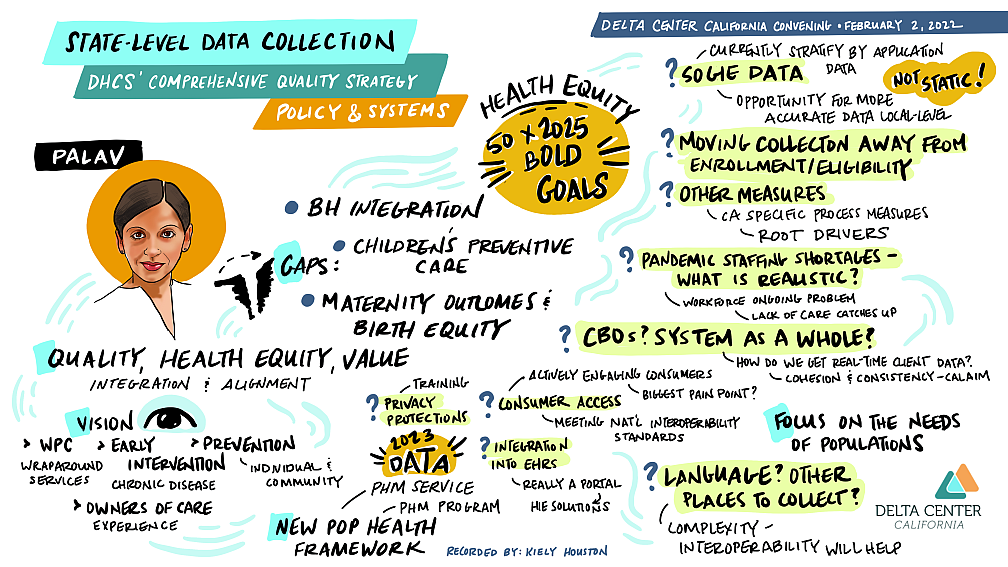 STATE-LEVEL DATA COLLECTION
DHCS' COMPREHENSIVE QUALITY STRATEGY
POLICY & SYSTEMS
DELTA CENTER CALIFORNIA CONVENING • FEBRUARY 2, 2022
PALAV
HEALTH EQUITY
50 X 2025
BOLD
GOALS
GAPS:
• BH INTEGRATION
• CHILDREN'S PREVENTIVE
CARE
• MATERNITY OUTCOMES &
BIRTH EQUITY
QUALITY, HEALTH EQUITY, VALUE
INTEGRATION & ALIGNMENT
VISION
> WPC
WRAPAROUND
SERVICES
> EARLY
INTERVENTION
CHRONIC DISEASE
> PREVENTION
INDIVIDUAL &
COMMUNITY
> OWNERS OF CARE
EXPERIENCE
TRAINING
? PRIVACY
PROTECTIONS
2023
DATA
PHM SERVICE
PHM PROGRAM
NEW POP HEALTH
FRAMEWORK
RECORDED BY: KIELY HOUSTON
ACTIVELY ENGAGING CONSUMERS
BIGGEST PAIN POINT?
? CONSUMER ACCESS
MEETING NAT'L INTEROPERABILITY
STANDARDS
? INTEGRATION
INTO EHRS
REALLY A PORTAL
HIE SOLUTIONS
CURRENTLY STRATIFY BY APPLICATION
DATA
? SOGIE DATA
NOT STATIC!
OPPORTUNITY FOR MORE
ACCURATE DATA LOCAL-LEVEL
? MOVING COLLECTON AWAY FROM
ENROLLMENT/ELIGIBILITY
? OTHER MEASURES
CA SPECIFIC PROCESS MEASURES
ROOT DRIVERS
? PANDEMIC STAFFING SHORTALES -
WHAT IS REALISTIC?
WORKFORCE ONGOING PROBLEM
LACK OF CARE CATCHES UP
? CBOs? SYSTEM AS A WHOLE?
HOW DO WE GET REAL-TIME CLIENT DATA?
COHESION & CONSISTENCY-CALAIM
FOCUS ON THE NEEDS
OF POPULATIONS
? LANGUAGE? OTHER
PLACES TO COLLECT?
COMPLEXITY -
INTEROPERABILITY WILL HELP
DELTA CENTER
CALIFORNIA